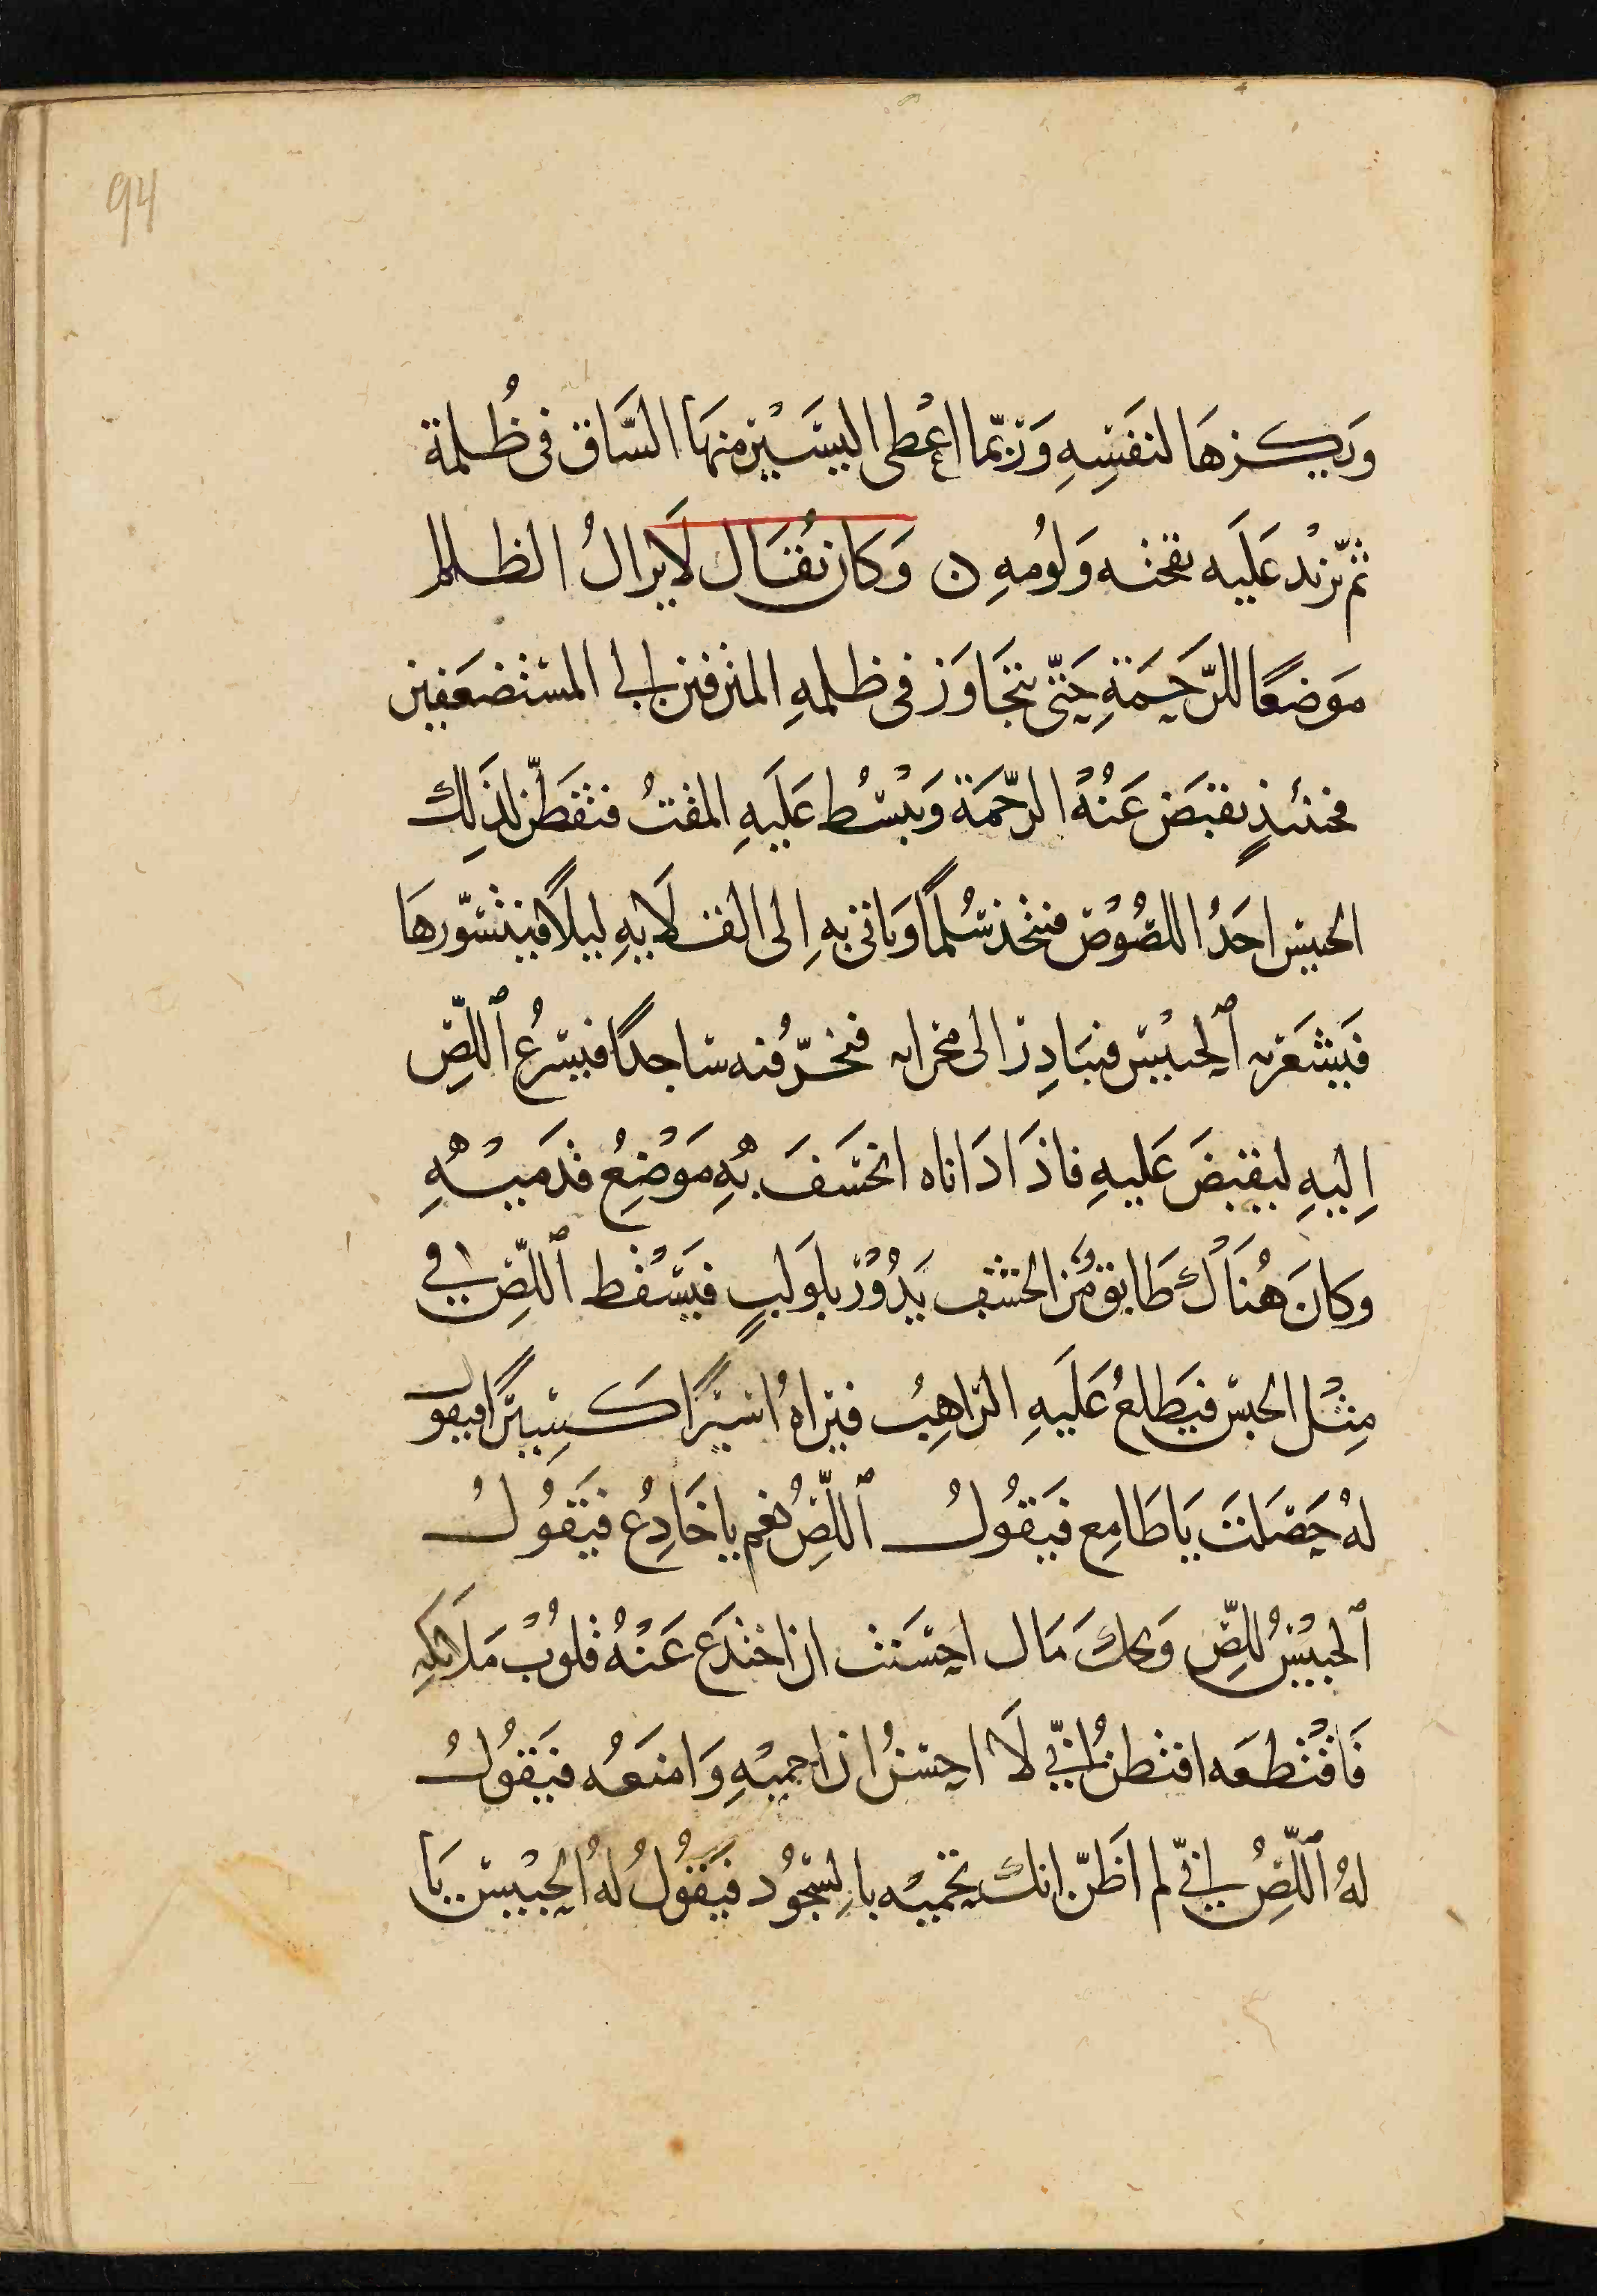 94
وَيكنزهَا لنفسِهِ وَرُبّما اعْطى اليسَيْر منهَا السَّاق فى ظُلمة
ثم يَزيْد عَليَه بقحته وَلومُهِ ن وَكان يُقَال لَا يزالُ الظالم
مَوضعًا للرّحَمَةِ حَتّى يتجَاوَز فى ظلمهِ المترفين اِلى المستضعَفين
فحينئذٍ تقبَض عَنْهُ الرّحْمَة وَيبْسُط عَليَهِ المقتُ فتفَطّن لذَلِك
الحبيس احَدُ اللصُوْص فيتخذ سُلمًا وَياتى بهِ اِلى القلَايهِ ليلًا فيتسَوّرهَا
فَيَشعَر به ٱلحبيْس فيبَادِر الى محرابه فيخرّ فيه سَاجدًا فيسْرعُ ٱللّصِ
اِليهِ ليقبضَ عَليهِ فاذَا دَاناه انخسَفَ بهِ مَوْضِعُ قدَميْهِ
وَكانَ هُنَاك طَابق مْن الخشب يَدُوْر بلَولبٍ فيَسْقط ٱللّصِ فى
مِثْل الحبْس فيَطلعُ عَليَهِ الرّاهِبُ فيَراهُ اسْيرًا كسِيرًا فيقول
لهُ حَصَلتَ يَا طَامِع فيَقوُلُ ٱللّصُِ نعم يا خَادِعُ فيَقوُلُ
ٱلحبيْسُ للصِّ وَيحكَ مَال احسَنت ان اختدَع عَنْهُ قلوبْ مَلَائكِه
فَاقْتطعَه افتظنُ اِنّي لَا احسَنُ ان احميْهِ وَامنعَُه فيَقوُلُ
لهُ ٱللّصُِ اِنّي لم اظَنّ انك تحْميْه بالسّجُوْد فيَقوُلُ لهُ الحبيْس يَا